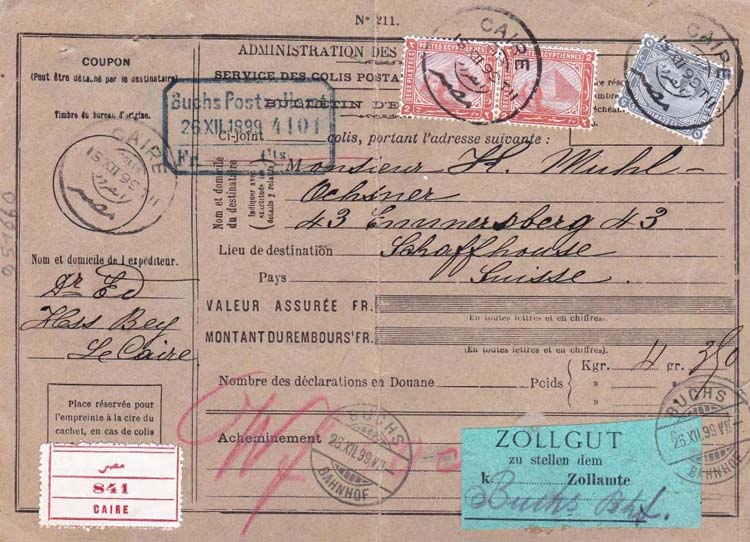 Nº 211.
COUPON
(Peut être détaché par le destinataire)
Timbre du bureau d'origine.
CAIRE
15 XII 99
مصر
Nom et domicile de l'expéditeur.
Dr Ed
Hess Bey
Le Caire
Place réservée pour
l'empreinte à la cire du
cachet, en cas de colis
مصر
841
CAIRE
ADMINISTRATION DES
SERVICE DES COLIS POSTA
BULLETIN D'E
Buchs Poste
26 XII 1899 4101
Fr. Cts.
POSTES EGYPTIENNES
DEUX PIASTRES
POSTES EGYPTIENNES
DEUX PIASTRES
CAIRE
15 XII 99
مصر
CAIRE
15 XII 99
مصر
Ci-Joint colis, portant l'adresse suivante :
Nom et domicile
du destinataire
Monsieur H. Muhl-
Ochsner
43 Emmersberg 43
Lieu de destination Schaffhouse
Pays Suisse
VALEUR ASSURÉE FR.
(En toutes lettres et en chiffres)
MONTANT DU REMBOURS' FR.
(En toutes lettres et en chiffres)
Nombre des déclarations en Douane Poids Kgr. 4 gr. 350
» »
» »
Acheminement
BUCHS
26.XII.99.VII
BAHNHOF
ZOLLGUT
zu stellen dem
k Zollamte
Buchs Bhf.
BUCHS
26.XII.99.VII
BAHNHOF
951660